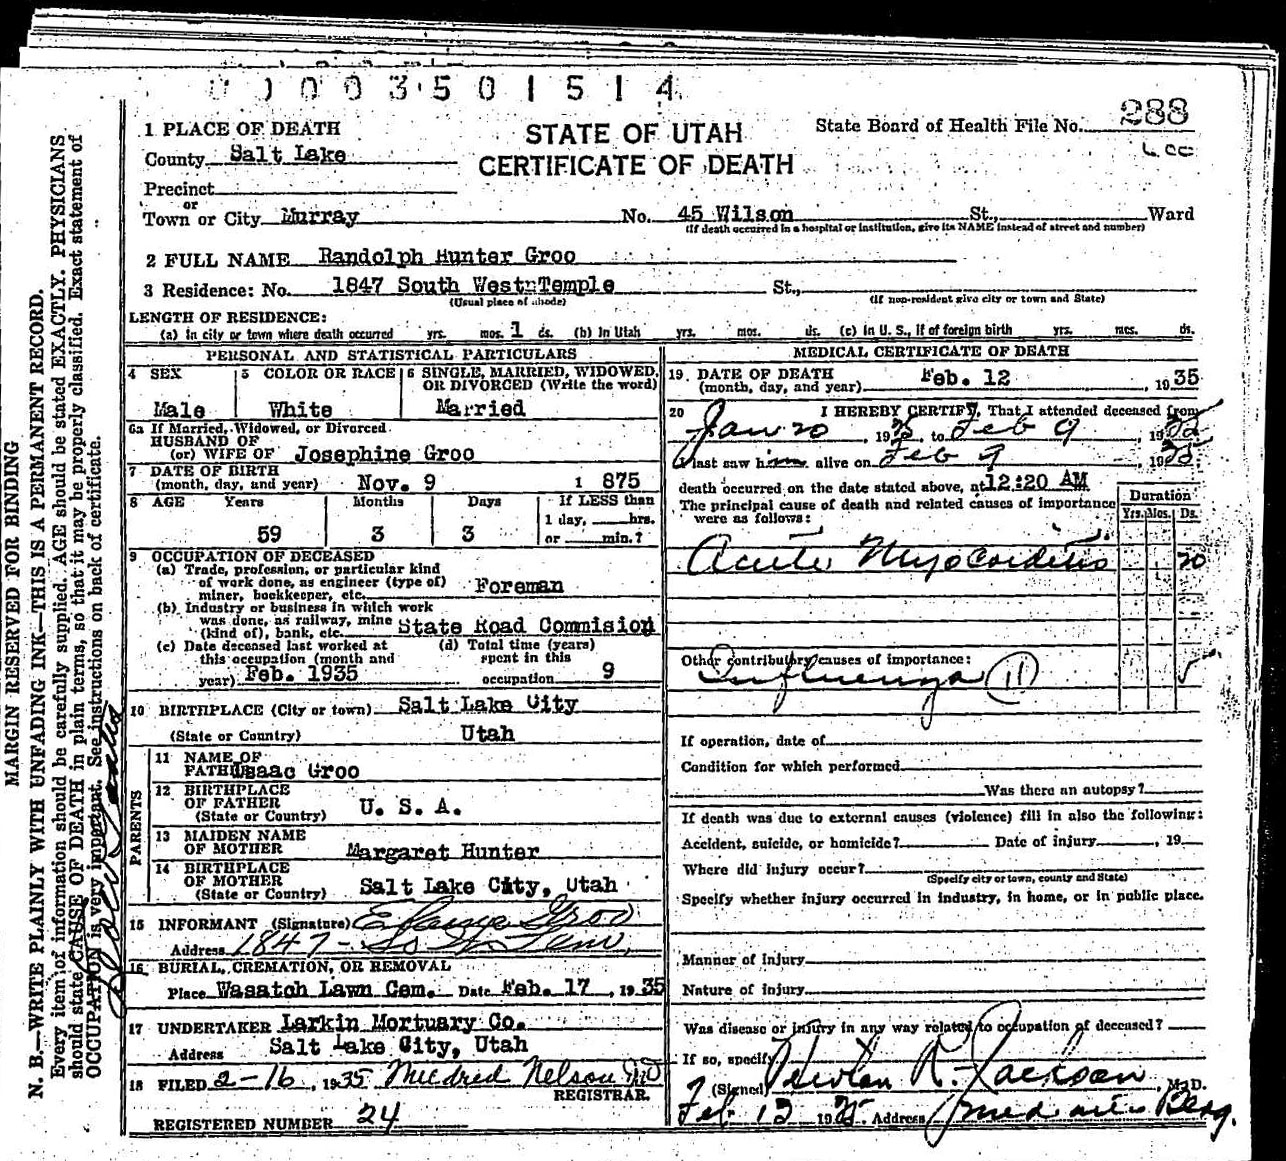 0 0 3 5 0 1 5 1 4
1 PLACE OF DEATH
STATE OF UTAH
CERTIFICATE OF DEATH
State Board of Health File No. 288
County Salt Lake
Precinct
or
Town or City Murray No. 45 Wilson St., Ward
(If death occurred in a hospital or institution, give its NAME instead of street and number)
2 FULL NAME Randolph Hunter Groo
3 Residence: No. 1847 South West Temple St.,
(Usual place of abode) (If non-resident give city or town and State)
LENGTH OF RESIDENCE:
(a) in city or town where death occurred yrs. mos. 1 ds. (b) In Utah yrs. mos. ds. (c) in U. S., if of foreign birth yrs. mos. ds.
PERSONAL AND STATISTICAL PARTICULARS
4 SEX 5 COLOR OR RACE 6 SINGLE, MARRIED, WIDOWED, OR DIVORCED (Write the word)
Male White Married
6a If Married, Widowed, or Divorced
HUSBAND OF
(or) WIFE OF Josephine Groo
7 DATE OF BIRTH
(month, day, and year) Nov. 9 1 875
8 AGE Years Months Days If LESS than
1 day, hrs.
59 3 3 or min.?
9 OCCUPATION OF DECEASED
(a) Trade, profession, or particular kind
of work done, as engineer (type of)
miner, bookkeeper, etc. Foreman
(b) Industry or business in which work
was done, as railway, mine
(kind of), bank, etc. State Road Commision
(c) Date deceased last worked at
this occupation (month and
year) Feb. 1935
(d) Total time (years)
spent in this
occupation 9
10 BIRTHPLACE (City or town) Salt Lake City
(State or Country) Utah
PARENTS
11 NAME OF
FATHER Isaac Groo
12 BIRTHPLACE
OF FATHER
(State or Country) U. S. A.
13 MAIDEN NAME
OF MOTHER Margaret Hunter
14 BIRTHPLACE
OF MOTHER
(State or Country) Salt Lake City, Utah
15 INFORMANT (Signature) Groo
Address 1847 - So W Tem,
16 BURIAL, CREMATION, OR REMOVAL
Place Wasatch Lawn Cem. Date Feb. 17, 1935
17 UNDERTAKER Larkin Mortuary Co.
Address Salt Lake City, Utah
18 FILED 2-16, 1935 Mildred Nelson MD
REGISTRAR.
REGISTERED NUMBER 24
MEDICAL CERTIFICATE OF DEATH
19 DATE OF DEATH
(month, day, and year) Feb. 12, 1935
20 I HEREBY CERTIFY, That I attended deceased from
Jan 20, 1935 to Feb 9, 1935
I last saw him alive on Feb 9, 1935
death occurred on the date stated above, at 12:20 AM
The principal cause of death and related causes of importance
were as follows:
Duration
Yrs. Mos. Ds.
Acute Myocarditis 20
Other contributory causes of importance:
Influenza (11) 5
If operation, date of
Condition for which performed
Was there an autopsy?
If death was due to external causes (violence) fill in also the following:
Accident, suicide, or homicide? Date of injury, 19
Where did injury occur?
(Specify city or town, county and State)
Specify whether injury occurred in industry, in home, or in public place.
Manner of injury
Nature of injury
Was disease or injury in any way related to occupation of deceased?
If so, specify
(Signed) R. Jackson, M. D.
Feb 12 1935. Address Bldg.
MARGIN RESERVED FOR BINDING
N. B.—WRITE PLAINLY WITH UNFADING INK—THIS IS A PERMANENT RECORD.
Every item of information should be carefully supplied. AGE should be stated EXACTLY. PHYSICIANS
should state CAUSE OF DEATH in plain terms, so that it may be properly classified. Exact statement of
OCCUPATION is very important. See instructions on back of certificate.